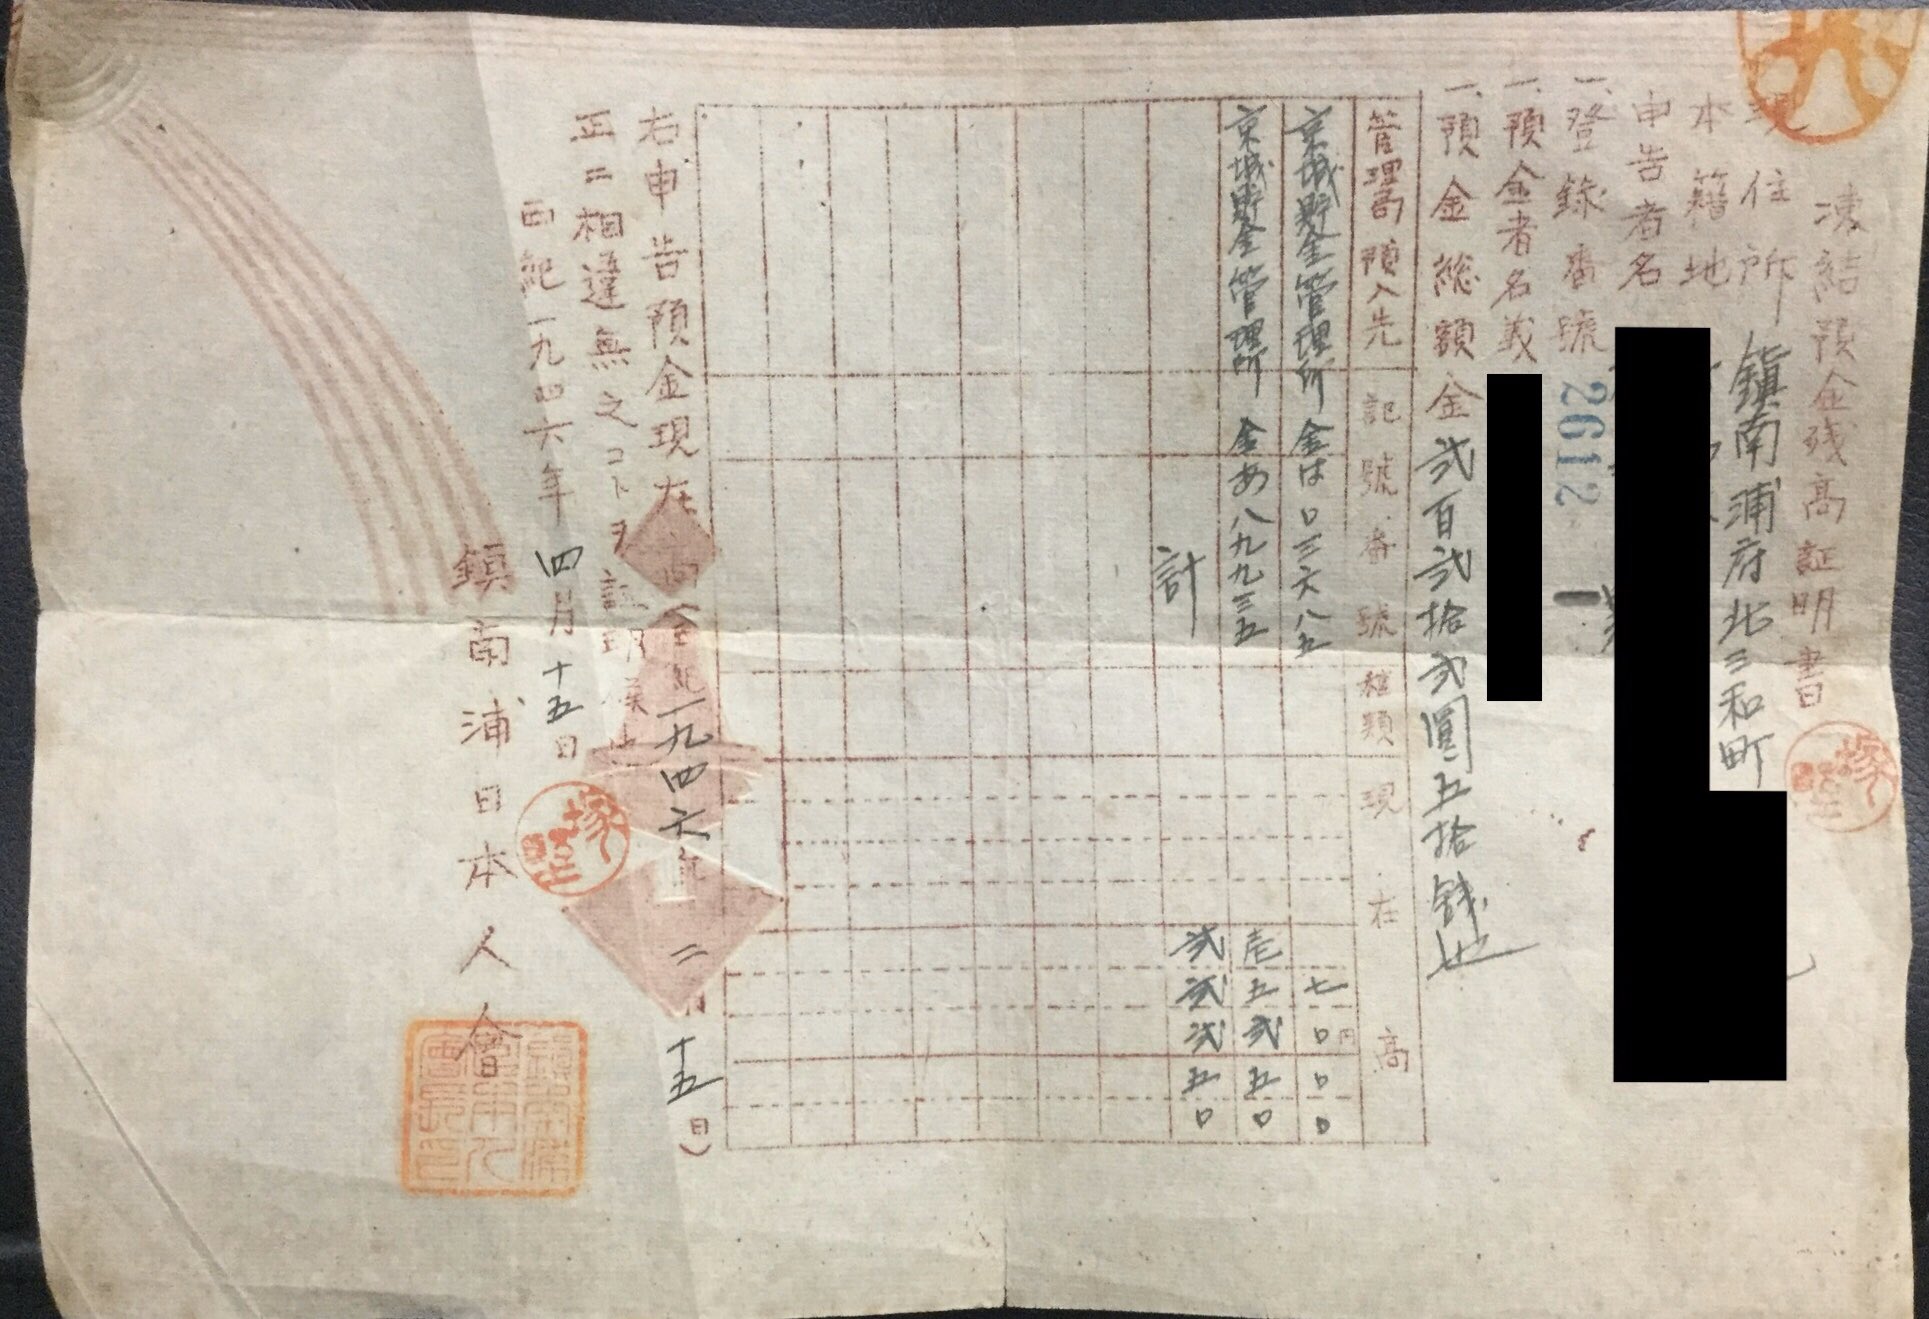 凍結預金残高証明書
現住所 鎮南浦府北三和町
本籍地
申告者名
一、登録番號 2612
一、預金者名義
一、預金総額 金弐百弐拾弐圓五拾銭也
管理高預入先 記號番號 種類 現在高
京城貯金管理所 金は口三六八五 七口円口口
京城貯金管理所 金あ八九九三五 壱五弐五口
計 弐弐弐五口
右申告預金現在高(西紀一九四六年二月十五日)
正ニ相違無之コトヲ証明候也
西紀一九四六年四月十五日
鎮南浦日本人會